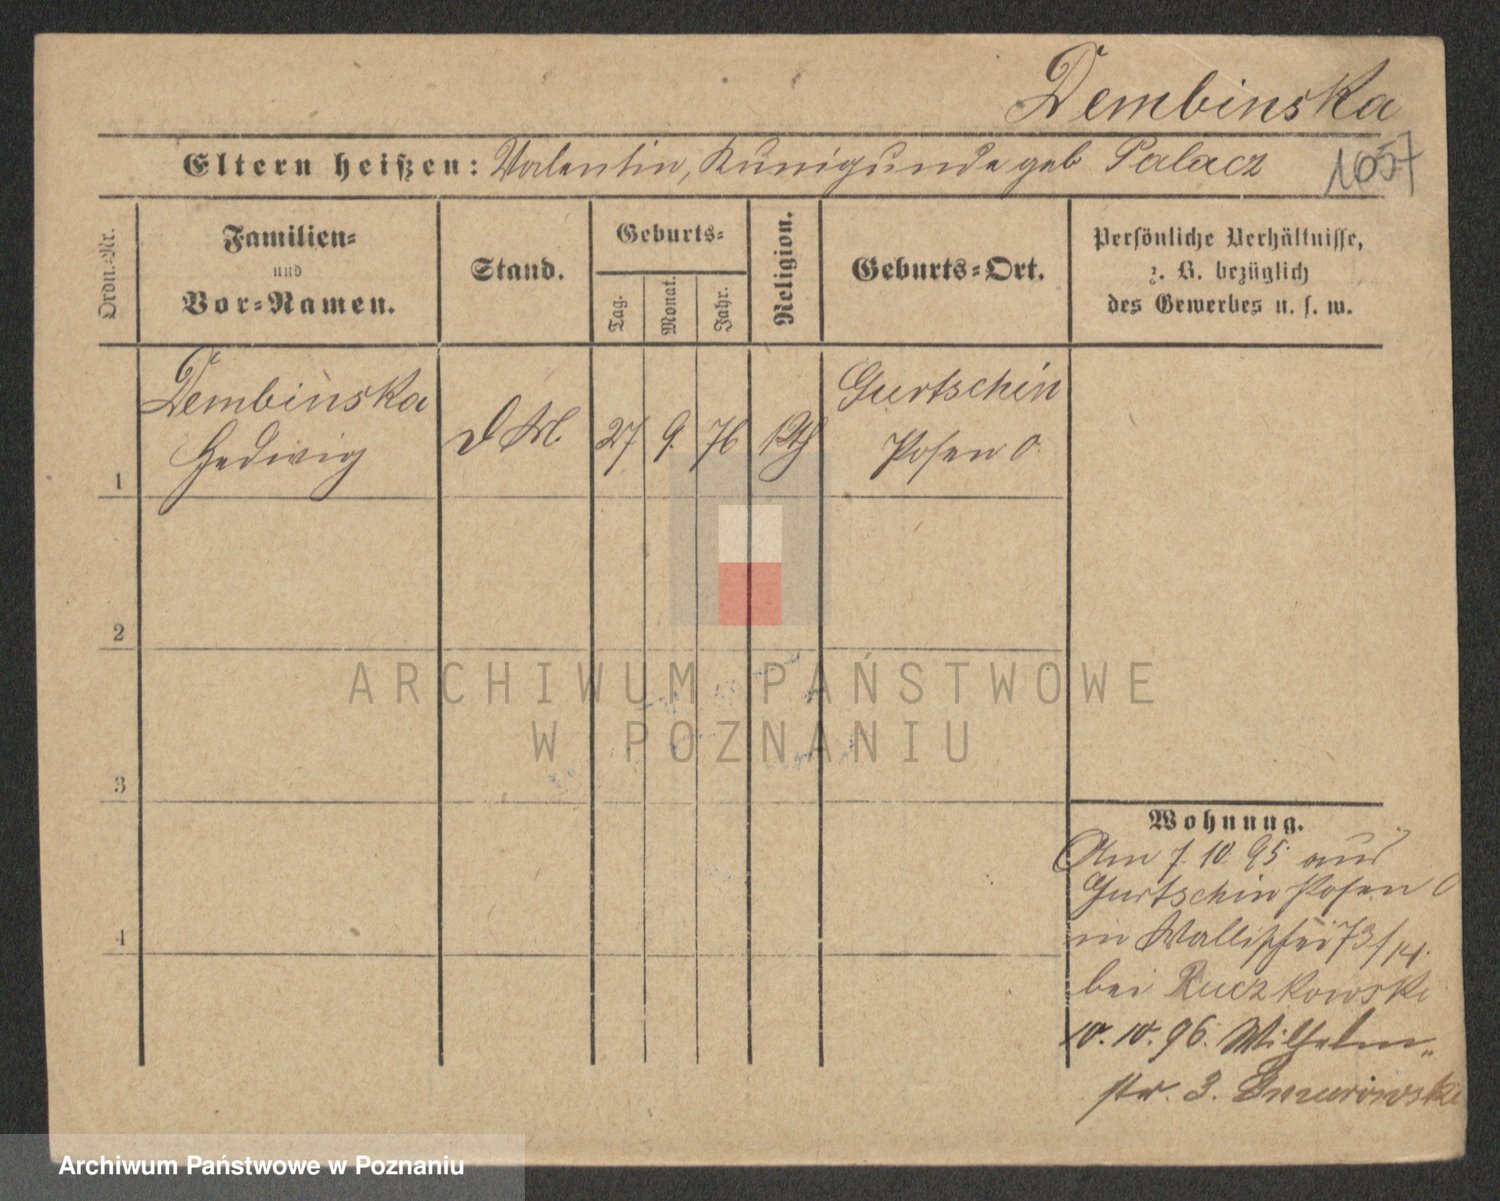 Dembinska
Eltern heißen: Valentin, Kunigunde geb Palacz
1057
Ordn.-Nr.
Familien-
und
Vor-Namen.
Stand.
Geburts-
Tag.
Monat.
Jahr.
Religion.
Geburts-Ort.
Persönliche Verhältnisse,
z. B. bezüglich
des Gewerbes u. s. w.
1
Dembinska
Hedwig
27
9.
76
kth
Gurtschin
Posen O.
2
3
4
Wohnung.
Am 7. 10. 95 aus
Gurtschin Posen O
in Wallischei 73/
bei Ruczkowski
10. 10. 96. Wilhelm-
str. 3.
ARCHIWUM PAŃSTWOWE
W POZNANIU
Archiwum Państwowe w Poznaniu